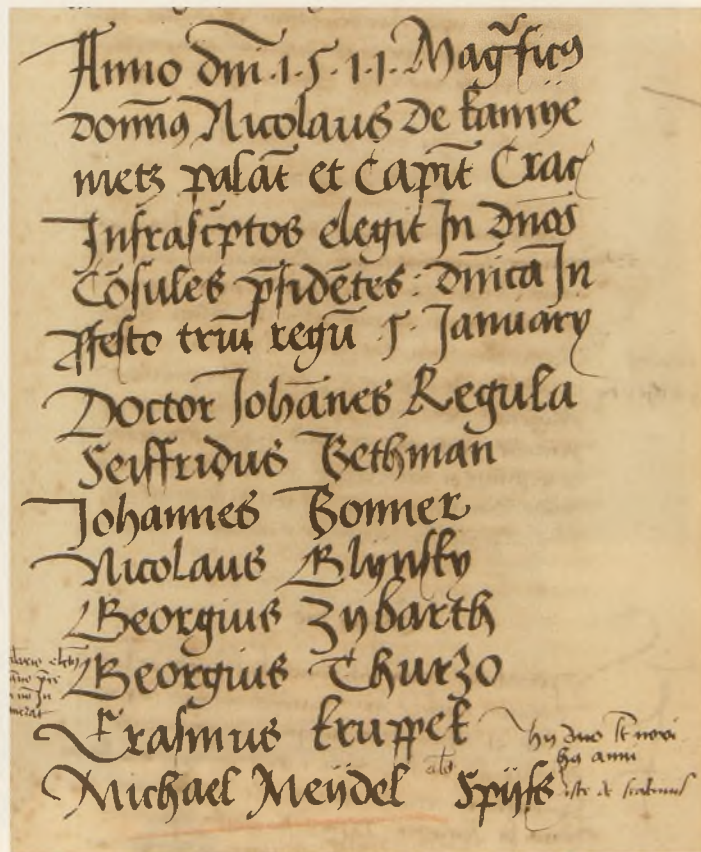 Anno dni .1.5.1.1. Magficus
Domnus Nicolaus De kamye
metz palat et Capit Crac
Infrascptos elegit In dnos
Cosules psidetes : dnica In
ffesto triu regu 5 January
Doctor Johanes Regula
Seiffridus Bethman
Johannes Bonner
Nicolaus Glynsky
Georgius Zybarth
Georgius Thurzo
Erasmus kruppek hy duo st novi
hq anni
Michael Meydel als Spyss iste de scabinis